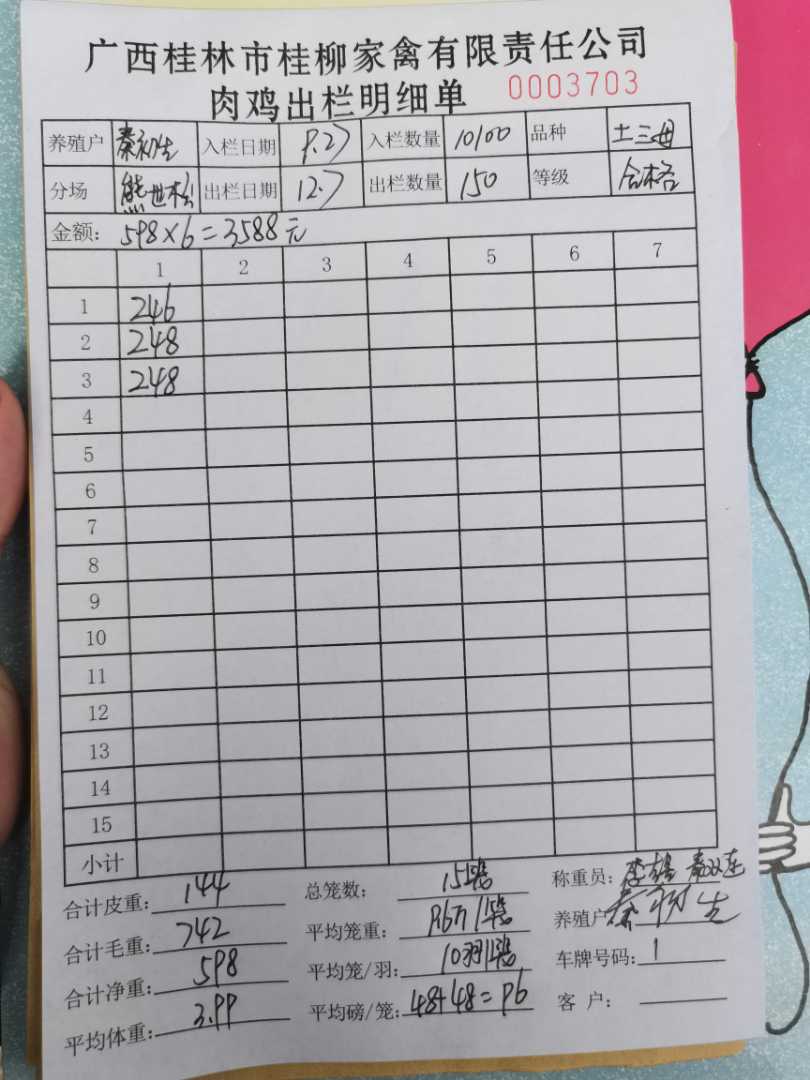 广西桂林市桂柳家禽有限责任公司
肉鸡出栏明细单 0003703
养殖户 秦初生 入栏日期 9.27 入栏数量 10100 品种 土三母
分场 熊世松 出栏日期 12.7 出栏数量 150 等级 合格
金额: 598×6=3588元
1 2 3 4 5 6 7
1 246
2 248
3 248
4
5
6
7
8
9
10
11
12
13
14
15
小计
合计皮重: 144 总笼数: 15 称重员:
合计毛重: 742 平均笼重: 9.6 养殖户 秦初生
合计净重: 598 平均笼/羽: 10羽 车牌号码: 1
平均体重: 3.99 平均磅/笼: 48+48=96 客 户: